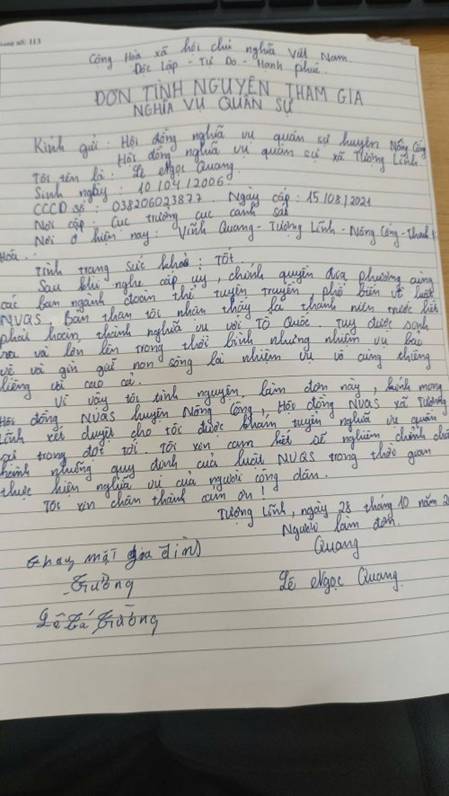 Trang số: 113
Cộng Hoà xã hội chủ nghĩa Việt Nam
Độc Lập - Tự Do - Hạnh phúc
ĐƠN TÌNH NGUYỆN THAM GIA
NGHĨA VỤ QUÂN SỰ
Kính gửi: Hội đồng nghĩa vụ quân sự huyện Nông Cống
Hội đồng nghĩa vụ quân sự xã Tượng Lĩnh.
Tôi tên là: Lê Ngọc Quang.
Sinh ngày: 10/04/2006.
CCCD số: 038206023877. Ngày cấp: 15/08/2021
Nơi cấp: Cục trưởng cục cảnh sát
Nơi ở hiện nay: Vĩnh Quang - Tượng Lĩnh - Nông Cống - Thanh
Hoá.
Tình trạng sức khoẻ: Tốt
Sau khi nghe cấp uỷ, chính quyền địa phương cùng
các ban ngành đoàn thể tuyên truyền, phổ biến về luật
NVQS. Bản thân tôi nhận thấy là thanh niên trước hết
phải hoàn thành nghĩa vụ với Tổ Quốc. Tuy được sinh
ra và lớn lên trong thời bình nhưng nhiệm vụ bảo
vệ và gìn giữ non sông là nhiệm vụ vô cùng thiêng
liêng và cao cả.
Vì vậy tôi tình nguyện làm đơn này, kính mong
Hội đồng NVQS huyện Nông Cống, Hội đồng NVQS xã Tượng
Lĩnh xét duyệt cho tôi được tham tuyển nghĩa vụ quân
sự trong đợt tới. Tôi xin cam kết sẽ nghiêm chỉnh chấp
hành những quy định của luật NVQS trong thời gian
thực hiện nghĩa vụ của người công dân.
Tôi xin chân thành cảm ơn!
Tượng Lĩnh, ngày 28 tháng 10 năm 2
Người làm đơn.
Quang
Lê Ngọc Quang.
thay mặt gia đình
Trường
Lê Bá Trường